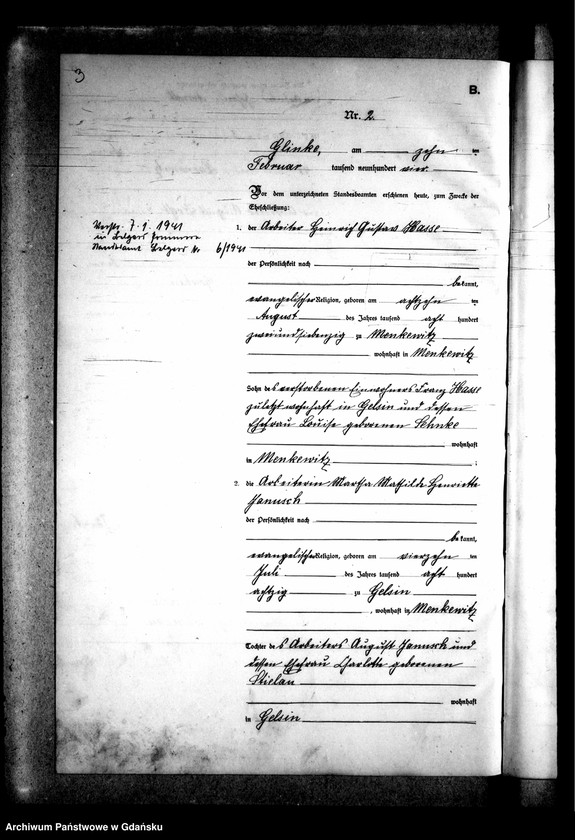 3
B.
Nr. 2.
Glinke, am zehn ten
Februar tausend neunhundert vier.
Vor dem unterzeichneten Standesbeamten erschienen heute, zum Zwecke der
Eheschließung:
1. der Arbeiter Heinrich Gustav Hasse
Verst. 7.1. 1941
in Belgard Pommern
Standesamt Belgard Nr. 6/1941
der Persönlichkeit nach
bekannt,
evangelischer Religion, geboren am achtzehn ten
August des Jahres tausend acht hundert
zweiundsiebenzig zu Menkewitz
wohnhaft in Menkewitz
Sohn des verstorbenen Einwohners Franz Hasse
zuletzt wohnhaft in Gelsin und dessen
Ehefrau Louise geborenen
wohnhaft
in Menkewitz ;
2. die Arbeiterin Martha Mathilde Henriette
Janusch
der Persönlichkeit nach
bekannt,
evangelischer Religion, geboren am vierzehn ten
Juli des Jahres tausend acht hundert
achtzig zu Gelsin
, wohnhaft in Menkewitz
Tochter des Arbeiters August Janusch und
dessen Ehefrau Charlotte geborenen
Stielau
wohnhaft
in Gelsin
Archiwum Państwowe w Gdańsku